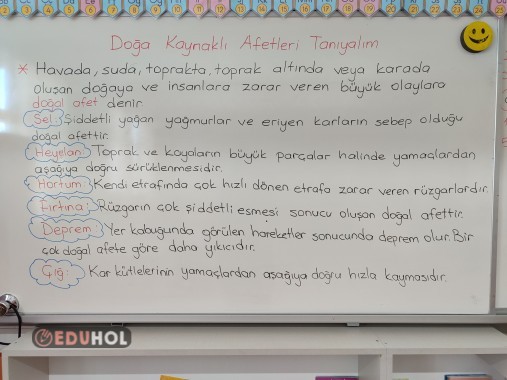 Doğa Kaynaklı Afetleri Tanıyalım
* Havada, suda, toprakta, toprak altında veya karada
oluşan doğaya ve insanlara zarar veren büyük olaylara
doğal afet denir.
Sel: Şiddetli yağan yağmurlar ve eriyen karların sebep olduğu
doğal afettir.
Heyelan: Toprak ve kayaların büyük parçalar halinde yamaçlardan
aşağıya doğru sürüklenmesidir.
Hortum: Kendi etrafında çok hızlı dönen etrafa zarar veren rüzgarlardır.
Fırtına: Rüzgarın çok şiddetli esmesi sonucu oluşan doğal afettir.
Deprem: Yer kabuğunda görülen hareketler sonucunda deprem olur. Bir
çok doğal afete göre daha yıkıcıdır.
Çığ: Kar kütlelerinin yamaçlardan aşağıya doğru hızla kaymasıdır.
EDUHOL